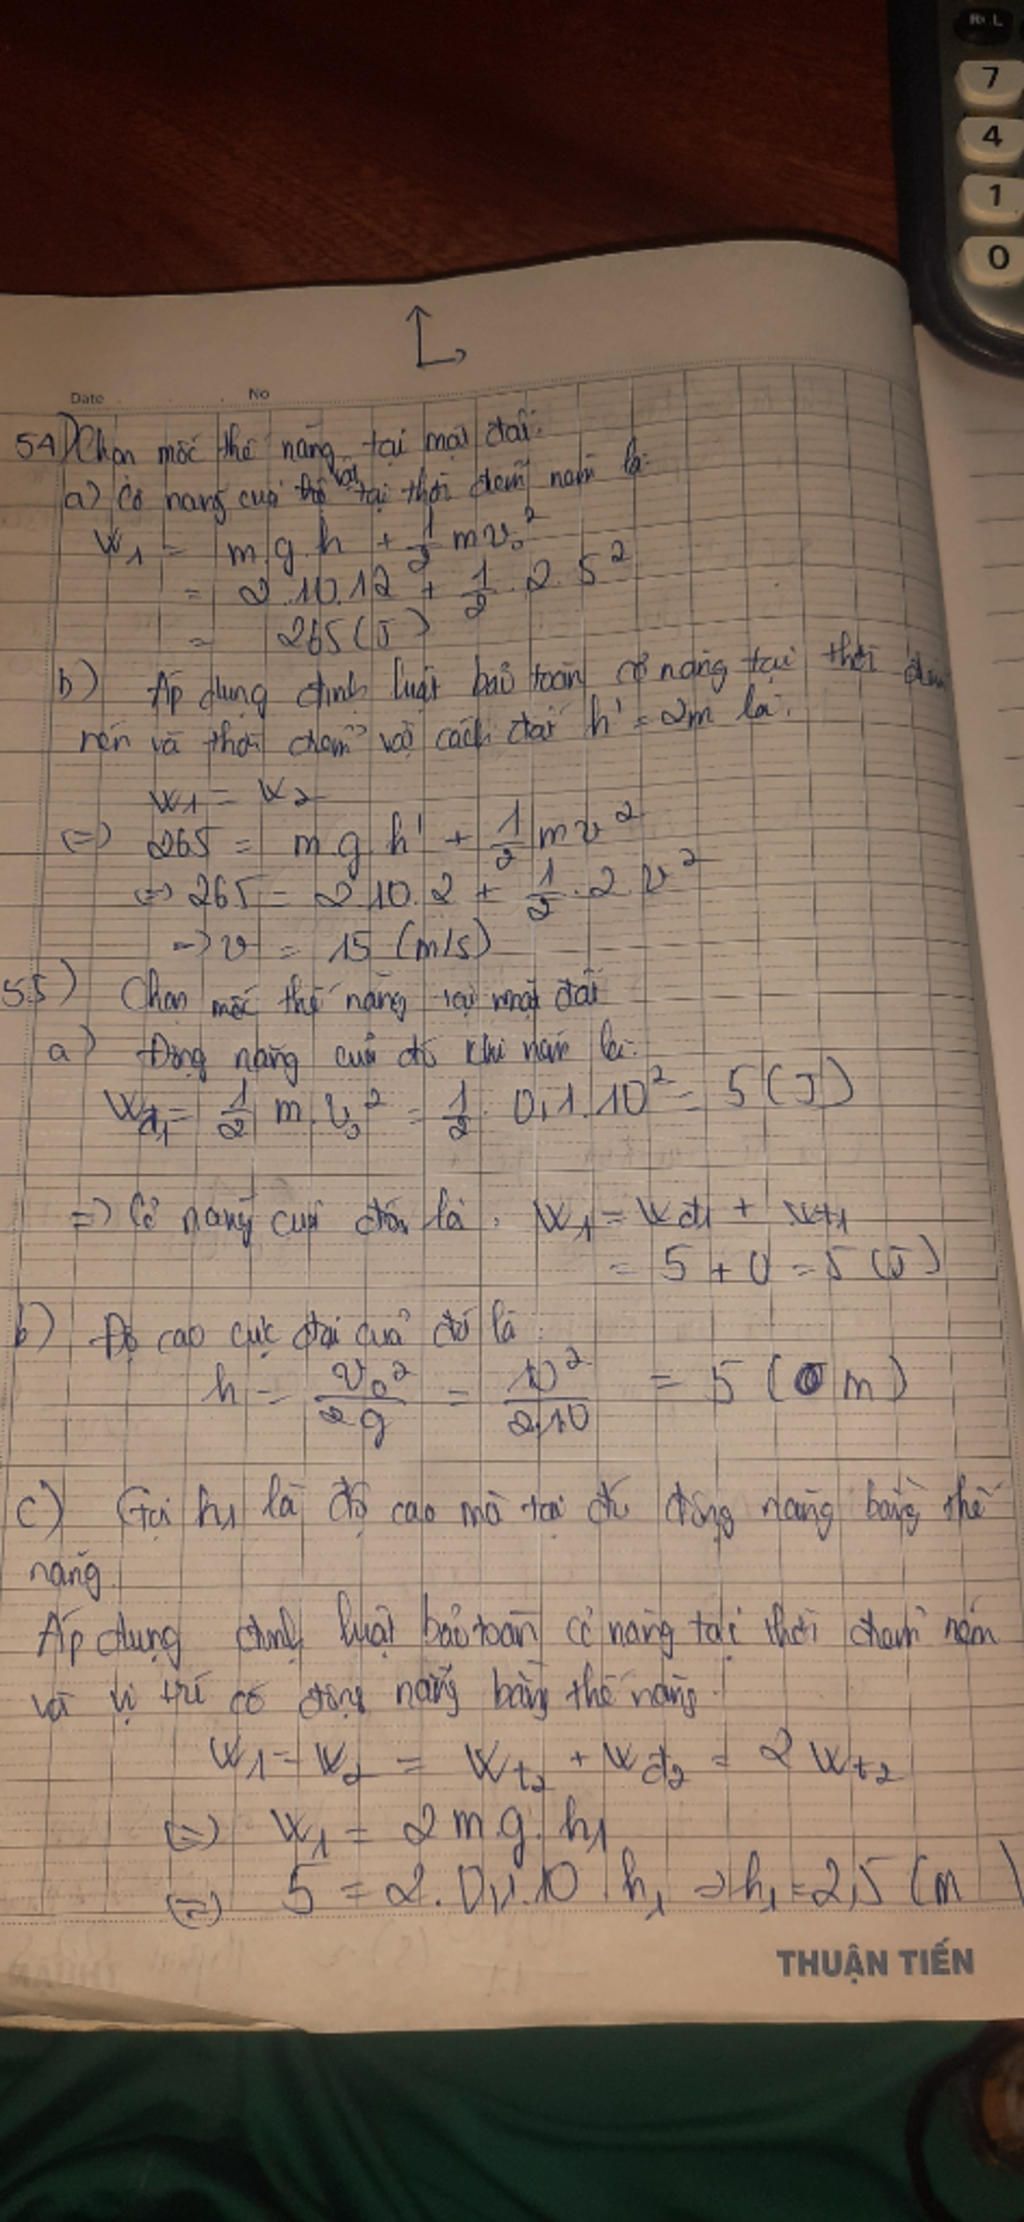 R◄L
7
4
1
0
Date No
54) Chọn mốc thế năng tại mặt đất.
a) Cơ năng của vật tại thời điểm ném là:
W₁ = m.g.h + 1/2 mv₀²
= 2.10.12 + 1/2 . 2. 5²
= 265 (J)
b) Áp dụng định luật bảo toàn cơ năng tại thời điểm
ném và thời điểm vật cách đất h' = 2m là.
W₁ = W₂
(=) 265 = m.g.h' + 1/2 mv²
(=) 265 = 2.10.2 + 1/2 . 2. v²
=> v = 15 (m/s)
55) Chọn mốc thế năng tại mặt đất
a) Động năng của đá khi ném là:
Wđ₁ = 1/2 m.v₀² = 1/2 . 0,1.10² = 5 (J)
=) Cơ năng của đá là. W₁ = Wđ₁ + Wt₁
= 5 + 0 = 5 (J)
b) Độ cao cực đại của đá là:
h = v₀²/2g = 10²/2.10 = 5 (m)
c) Gọi h₁ là độ cao mà tại đó động năng bằng thế
năng.
Áp dụng định luật bảo toàn cơ năng tại thời điểm ném
và vị trí có động năng bằng thế năng.
W₁ = W₂ = Wt₂ + Wđ₂ = 2Wt₂
(=) W₁ = 2m.g.h₁
(=) 5 = 2. 0,1.10.h₁ => h₁ = 2,5 (m)
THUẬN TIẾN